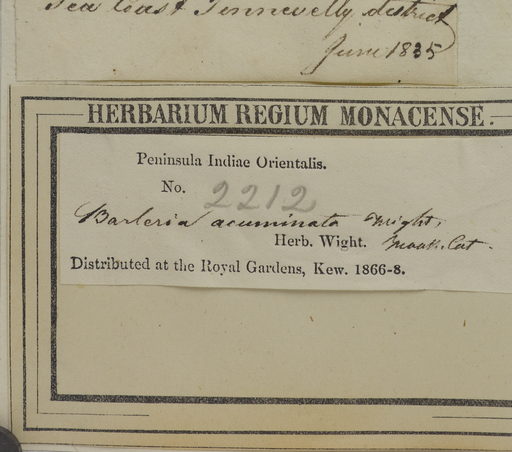 Sea Coast Tinnevelly district
June 1835
HERBARIUM REGIUM MONACENSE.
Peninsula Indiae Orientalis.
No. 2212
Barleria acuminata Wight,
Herb. Wight. Cat.
Distributed at the Royal Gardens, Kew. 1866-8.